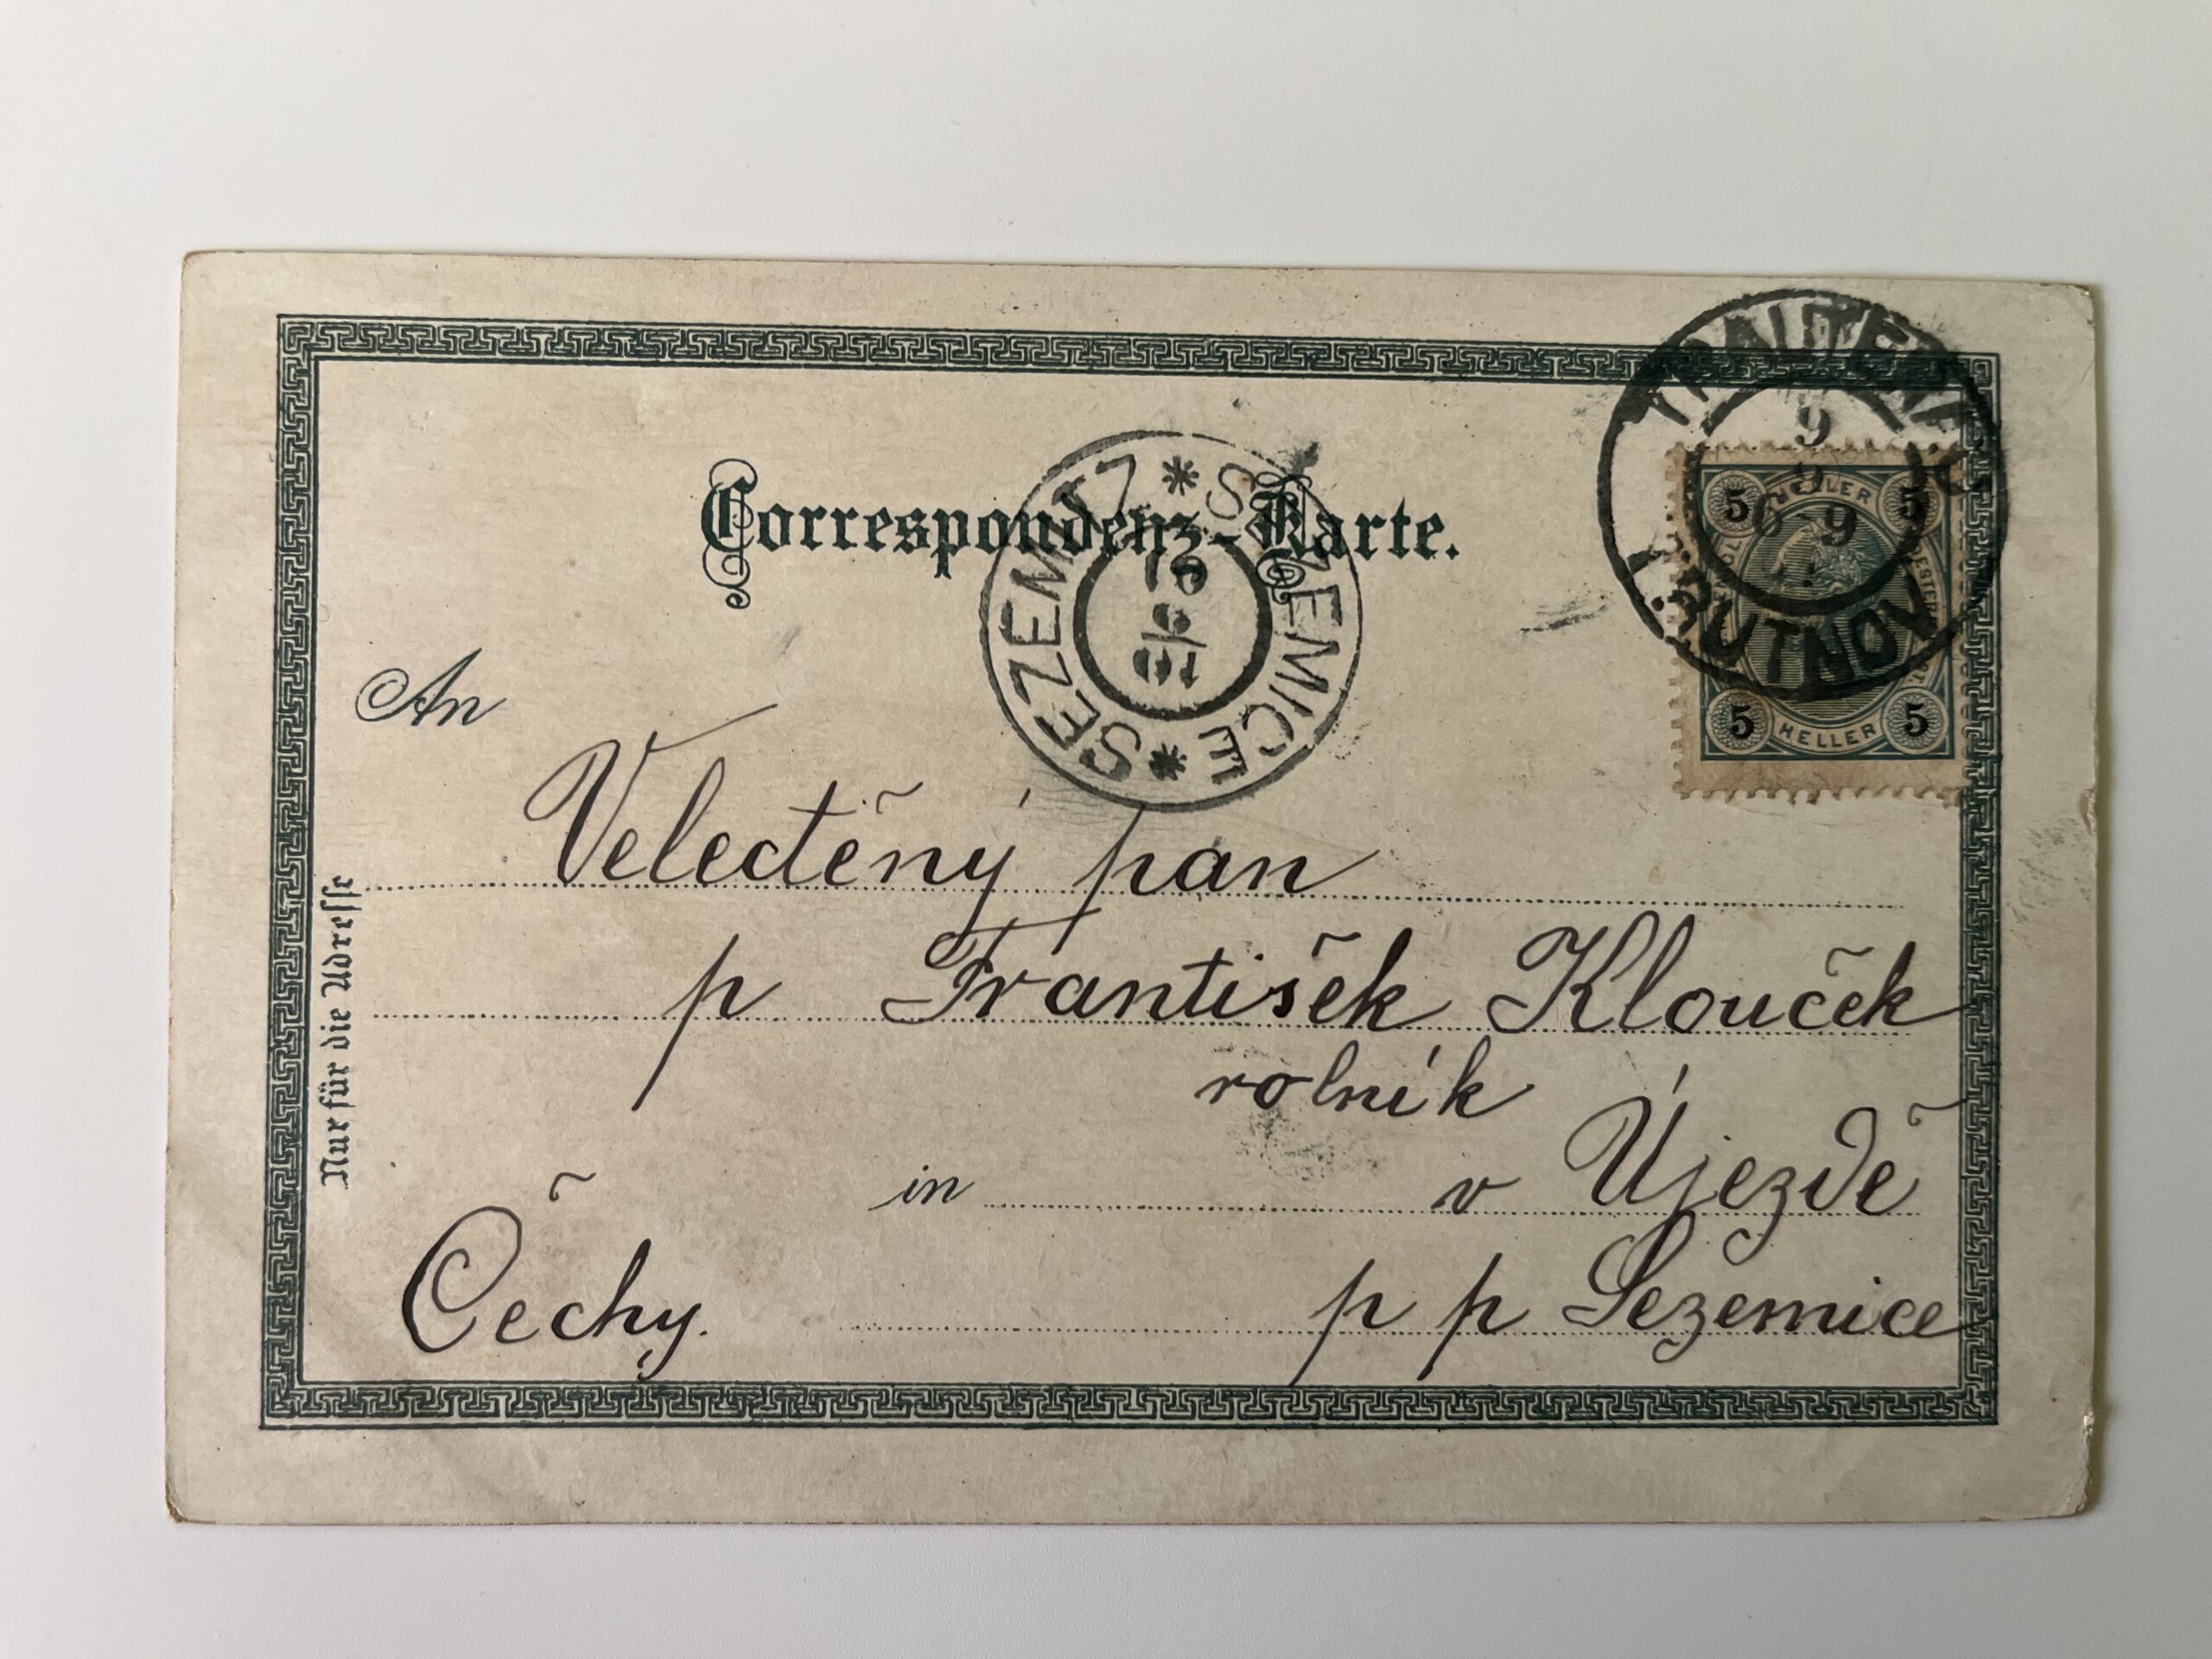 Correspondenz-Karte.
SEZEMITZ * SEZEMICE *
TRAUTENAU
9
9
6-9
TRUTNOV
5 HELLER 5
5 HELLER 5
An
Veledtěný pan
p František Klouček
rolník
in v Újezdě
Čechy. p p Sezemice
Nur für die Adresse